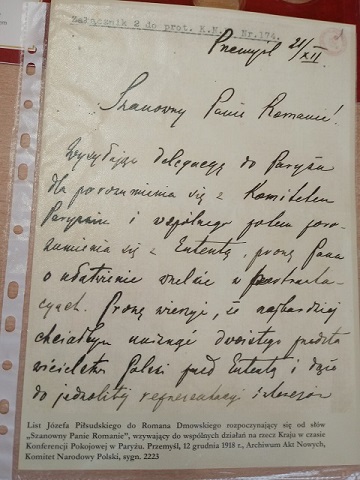 Załącznik 2 do prot. K.N. Nr. 174.
Przemyśl 21/XII.
Szanowny Panie Romanie!
Wysyłając delegację do Paryża
dla porozumienia się z Komitetem
Paryskim i wspólnego potem poro-
zumienia się z Ententą, proszę Pana
o ułatwienie wszelkie w pertrakta-
cyach. Proszę wierzyć, że najbardziej
chciałbym uniknąć dwoistego przedsta
wicielstwa Polski przed Ententą i dążę
do jednolitej reprezentacji interesów
List Józefa Piłsudskiego do Romana Dmowskiego rozpoczynający się od słów
„Szanowny Panie Romanie”, wzywający do wspólnych działań na rzecz Kraju w czasie
Konferencji Pokojowej w Paryżu. Przemyśl, 12 grudnia 1918 r., Archiwum Akt Nowych,
Komitet Narodowy Polski, sygn. 2223